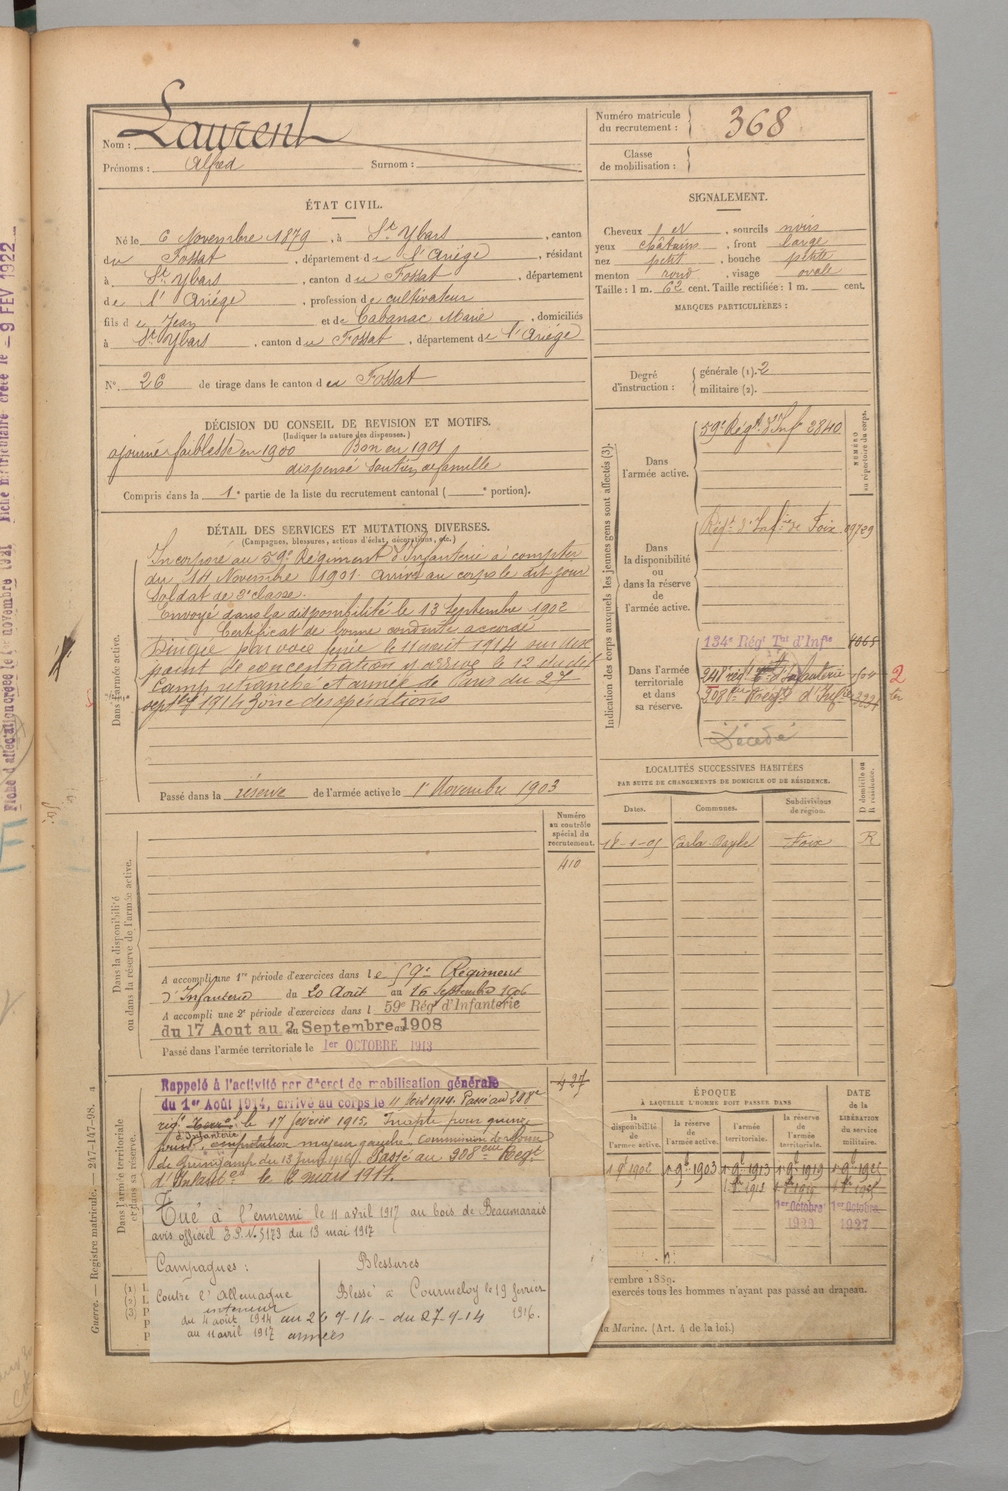 Nom : Laurent
Prénoms : Alfred Surnom :
Numéro matricule du recrutement : 368
Classe de mobilisation :
ÉTAT CIVIL.
Né le 6 Novembre 1879, à St Ybars, canton
du Fossat, département de l'Ariège, résidant
à St Ybars, canton de Fossat, département
de l'Ariège, profession de cultivateur
fils de Jean et de Cabanac Marie, domiciliés
à St Ybars, canton du Fossat, département de l'Ariège
N° 26 de tirage dans le canton du Fossat
SIGNALEMENT.
Cheveux N, sourcils noirs
yeux châtains, front large
nez petit, bouche petite
menton rond, visage ovale
Taille : 1 m. 62 cent. Taille rectifiée : 1 m. cent.
MARQUES PARTICULIÈRES :
Degré d'instruction : générale (1). 2
militaire (2).
DÉCISION DU CONSEIL DE REVISION ET MOTIFS.
(Indiquer la nature des dispenses.)
ajourné faiblesse en 1900 Bon en 1901
dispensé soutien de famille
Compris dans la 1e partie de la liste du recrutement cantonal ( e portion).
DÉTAIL DES SERVICES ET MUTATIONS DIVERSES.
(Campagnes, blessures, actions d'éclat, décorations, etc.)
Dans l'armée active.
Incorporé au 59e Régiment d'Infanterie à compter
du 14 Novembre 1901. arrivé au corps le dit jour
Soldat de 2e classe.
Envoyé dans la disponibilité le 13 Septembre 1902
Certificat de bonne conduite accordé
Dirigé par voie ferrée le 11 août 1914 sur
point de concentration y arrive le 12 du dit
Camp retranché et armée de Paris du 2
septbre 1914 Zône des opérations
Passé dans la réserve de l'armée active le 1er Novembre 1903
Indication des corps auxquels les jeunes gens sont affectés (3).
NUMÉRO au répertoire du corps.
Dans l'armée active.
59e Régt d'Inf 2840
Dans la disponibilité ou dans la réserve de l'armée active.
Régt d'Infrie de Foix
Dans l'armée territoriale et dans sa réserve.
134e Régt Tal d'Infie
d'Infanterie
Régt d'Infie
Décédé
2
LOCALITÉS SUCCESSIVES HABITÉES
PAR SUITE DE CHANGEMENTS DE DOMICILE OU DE RÉSIDENCE.
Dates. Communes. Subdivisions de région. D domicile ou R résidence.
Carla Bayle Foix R
Dans la disponibilité ou dans la réserve de l'armée active.
Numéro au contrôle spécial du recrutement.
410
A accompli une 1re période d'exercices dans le 59e Régiment
d'Infanterie du 20 Août au 16 Septembre 1906
A accompli une 2e période d'exercices dans l 59e Régt d'Infanterie
du 17 Aout au 2 Septembre 1908
Passé dans l'armée territoriale le 1er OCTOBRE 1913
Dans l'armée territoriale et dans sa réserve.
Rappelé à l'activité par décret de mobilisation générale
du 1er Août 1914, arrivé au corps le 4 1914. Passé au
regt d'Infanterie le 17 février 1915. Inapte pour quinze
jours, amputation majeur gauche. Commission de
de Guingamp du 13 Juin 1916. Passé au 208eme Regt
d'Infant le 2 mars 1917.
Tué à l'ennemi le 11 avril 1917 au bois de Beaumarais
avis officiel E.P. No 5173 du 13 mai 1917
Campagnes :
Contre l'Allemagne
intérieur
du 4 août 1914 au 26-9-14 - du 27-9-14
au 11 avril 1917 armées
Blessures
Blessé à le 19 février
1916.
ÉPOQUE
À LAQUELLE L'HOMME DOIT PASSER DANS
la disponibilité de l'armée active. la réserve de l'armée active. l'armée territoriale. la réserve de l'armée territoriale.
DATE de la LIBÉRATION du service militaire.
1902 1903 1913 1919
1er Octobre 1er Octobre
1927
vembre 1889.
exercés tous les hommes n'ayant pas passé au drapeau.
la Marine. (Art. 4 de la loi.)
Guerre. — Registre matricule. — 247-147-98.
9 FEV 1922